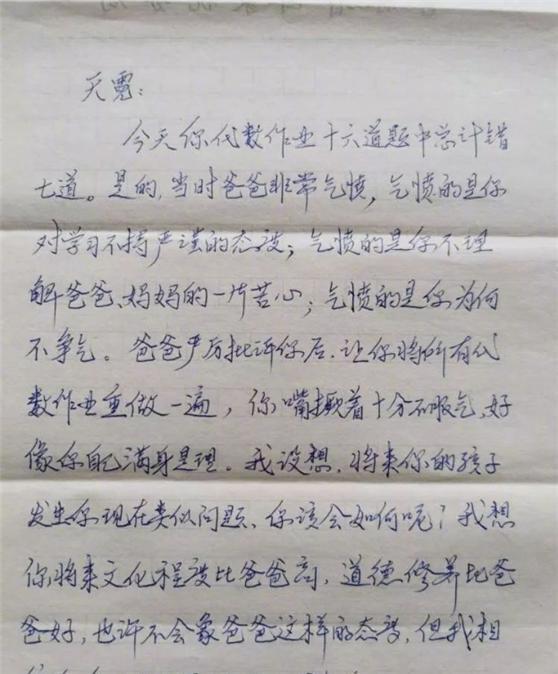 天霓：
今天你代数作业十六道题中总计错
七道。是的，当时爸爸非常气愤，气愤的是你
对学习不持严谨的态度；气愤的是你不理
解爸爸、妈妈的一片苦心；气愤的是你为何
不争气。爸爸严厉批评你后，让你将所有代
数作业重做一遍，你嘴撅着十分不服气，好
像你自己满身是理。我设想，将来你的孩子
发生你现在类似问题、你该会如何呢？我想
你将来文化程度比爸爸高，道德修养比爸
爸好，也许不会象爸爸这样的态度，但我相